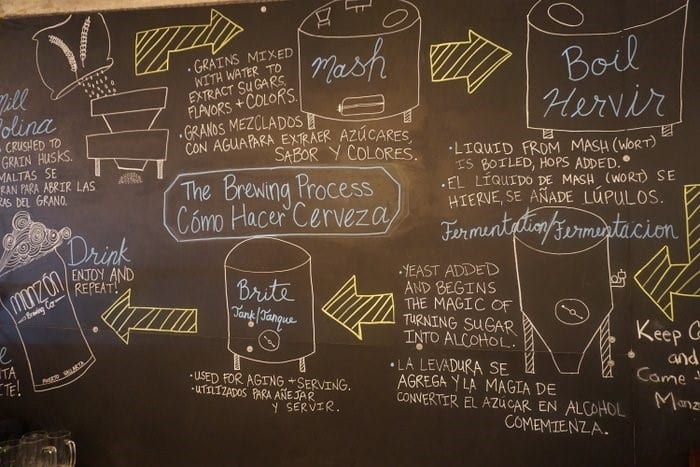 Mill
CRUSHED TO
GRAIN HUSKS.
MALTAS SE
PARA ABRIR LAS
DEL GRANO.
· GRAINS MIXED
WITH WATER TO
EXTRACT SUGARS,
FLAVORS + COLORS.
· GRANOS MEZCLADOS
CON AGUA PARA EXTRAER AZÚCARES,
SABOR Y COLORES.
Mash
Boil
Hervir
· LIQUID FROM MASH (WORT)
IS BOILED, HOPS ADDED.
· EL LÍQUIDO DE MASH (WORT) SE
HIERVE, SE AÑADE LÚPULOS.
The Brewing Process
Cómo Hacer Cerveza
Fermentation/Fermentacion
· YEAST ADDED
AND BEGINS
THE MAGIC OF
TURNING SUGAR
INTO ALCOHOL.
· LA LEVADURA SE
AGREGA Y LA MAGIA DE
CONVERTIR EL AZÚCAR EN ALCOHOL
COMEMIENZA.
Brite
Tank/Tanque
· USED FOR AGING + SERVING.
· UTILIZADOS PARA AÑEJAR
Y SERVIR.
Drink
ENJOY AND
REPEAT!
MONZÓN
Brewing Co.
PUERTO VALLARTA
Keep
and
Come